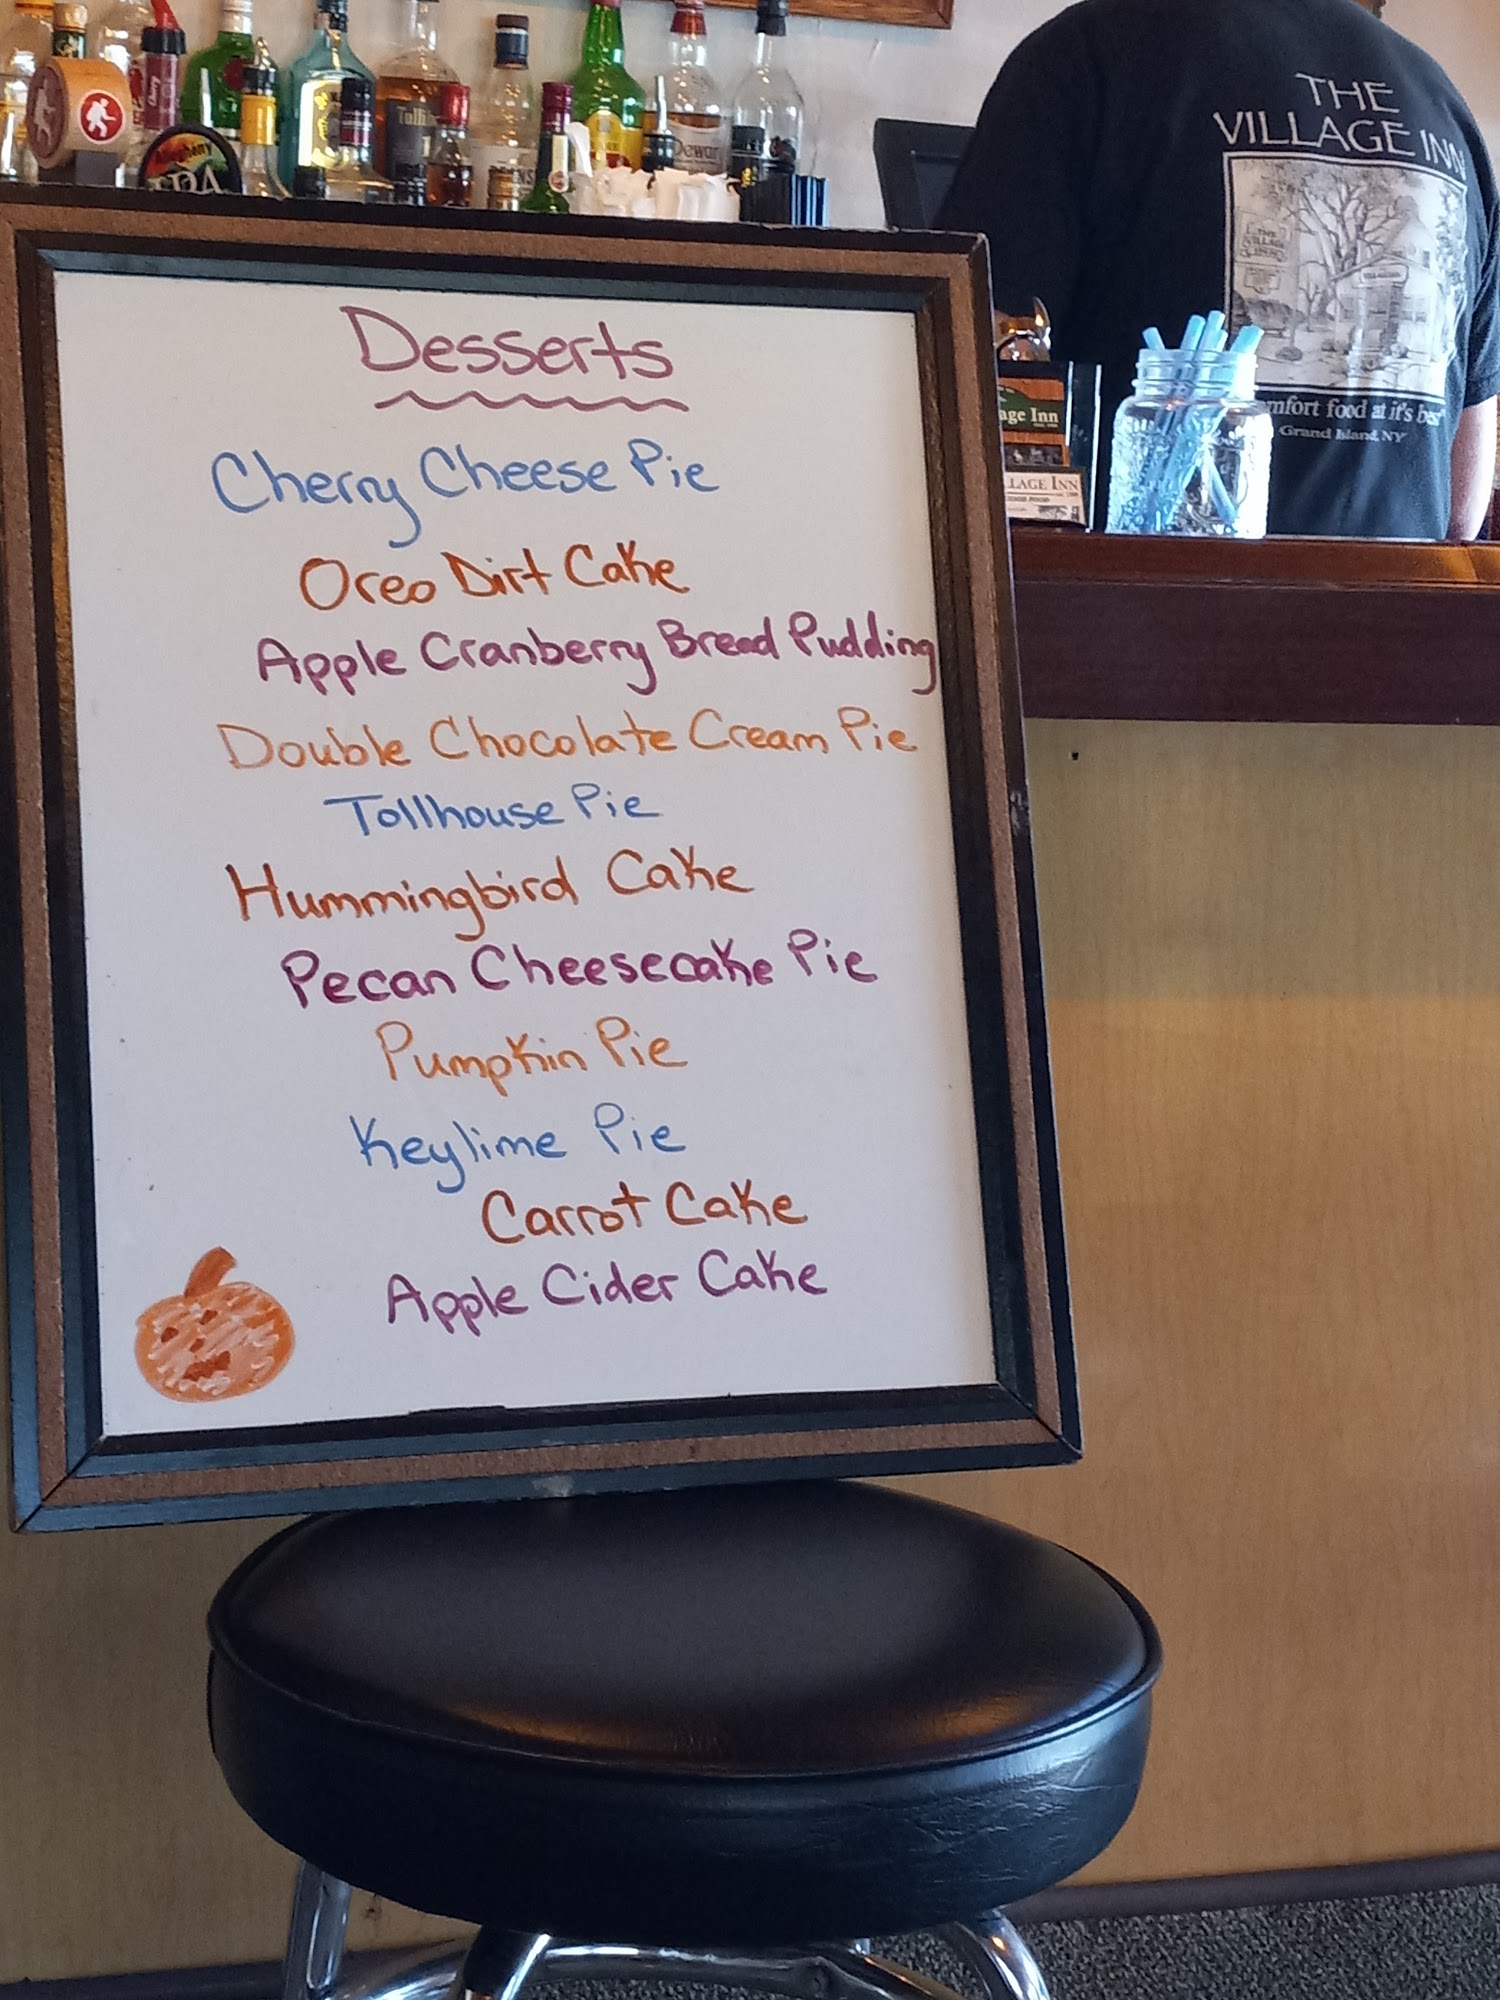 Allegheny
IPA
Tulli
Dewar
THE
VILLAGE INN
THE
VILLAGE
age Inn
LAGE INN
mfort food at it's bes
Grand Island, NY
Desserts
Cherry Cheese Pie
Oreo Dirt Cake
Apple Cranberry Bread Pudding
Double Chocolate Cream Pie
Tollhouse Pie
Hummingbird Cake
Pecan Cheesecake Pie
Pumpkin Pie
Keylime Pie
Carrot Cake
Apple Cider Cake